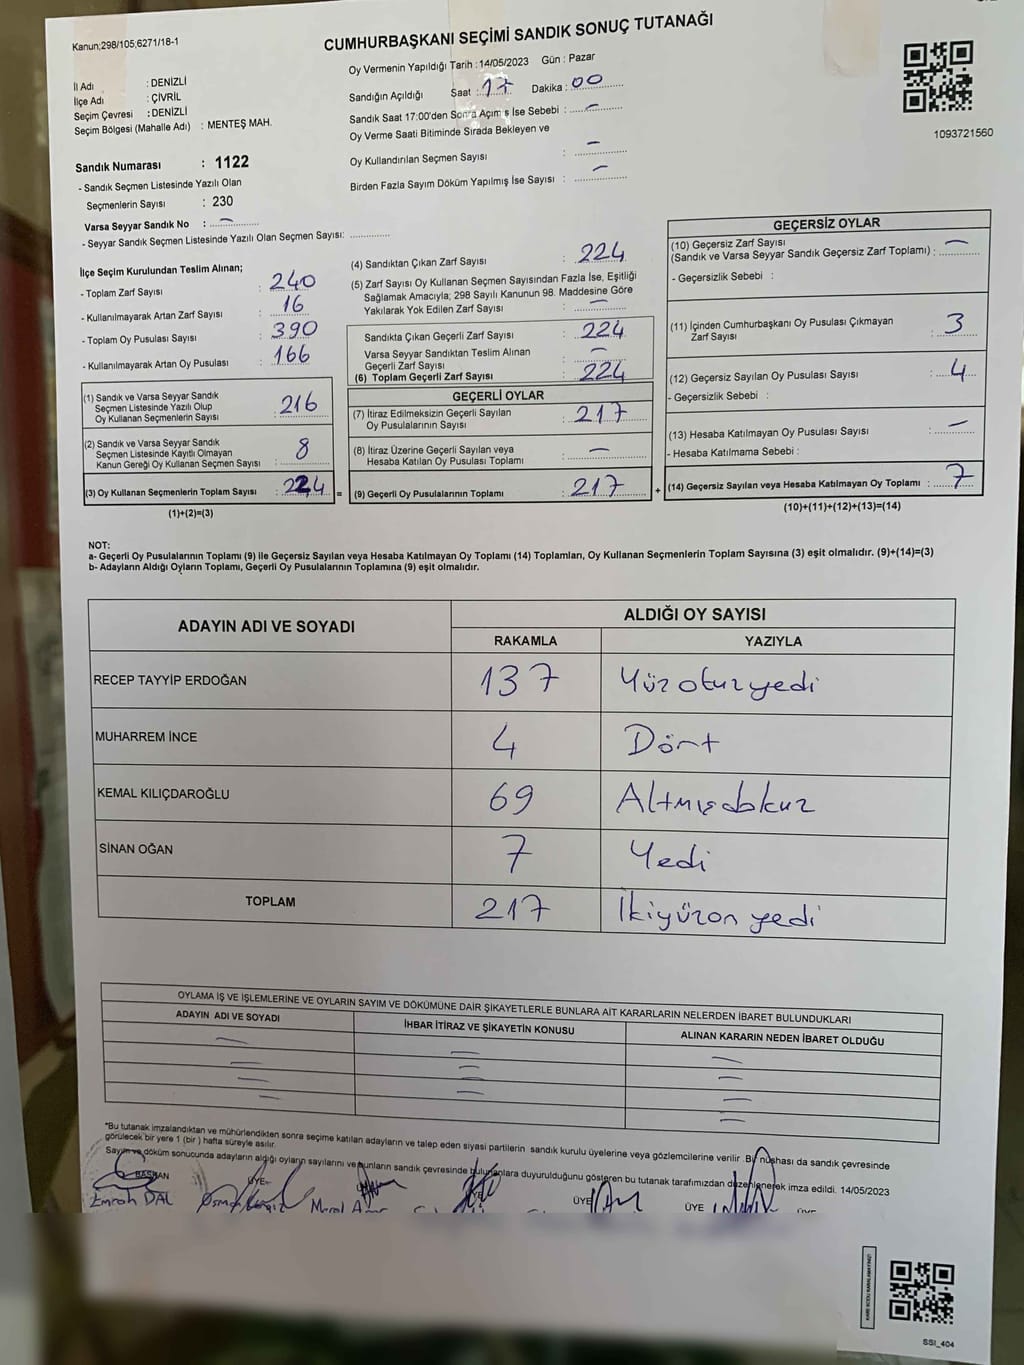 Kanun;298/105;6271/18-1
CUMHURBAŞKANI SEÇİMİ SANDIK SONUÇ TUTANAĞI
İl Adı : DENİZLİ
İlçe Adı : ÇİVRİL
Seçim Çevresi : DENİZLİ
Seçim Bölgesi (Mahalle Adı) : MENTEŞ MAH.
Sandık Numarası : 1122
- Sandık Seçmen Listesinde Yazılı Olan
Seçmenlerin Sayısı : 230
Varsa Seyyar Sandık No : –
- Seyyar Sandık Seçmen Listesinde Yazılı Olan Seçmen Sayısı:
Oy Vermenin Yapıldığı Tarih :14/05/2023 Gün : Pazar
Sandığın Açıldığı Saat : 17 Dakika : 00
Sandık Saat 17:00'den Sonra Açılmış İse Sebebi : –
Oy Verme Saati Bitiminde Sırada Bekleyen ve
Oy Kullandırılan Seçmen Sayısı : –
Birden Fazla Sayım Döküm Yapılmış İse Sayısı : –
1093721560
İlçe Seçim Kurulundan Teslim Alınan;
- Toplam Zarf Sayısı : 240
- Kullanılmayarak Artan Zarf Sayısı : 16
- Toplam Oy Pusulası Sayısı : 390
- Kullanılmayarak Artan Oy Pusulası : 166
(1) Sandık ve Varsa Seyyar Sandık
Seçmen Listesinde Yazılı Olup
Oy Kullanan Seçmenlerin Sayısı : 216
(2) Sandık ve Varsa Seyyar Sandık
Seçmen Listesinde Kayıtlı Olmayan
Kanun Gereği Oy Kullanan Seçmen Sayısı : 8
(3) Oy Kullanan Seçmenlerin Toplam Sayısı : 224 =
(1)+(2)=(3)
(4) Sandıktan Çıkan Zarf Sayısı : 224
(5) Zarf Sayısı Oy Kullanan Seçmen Sayısından Fazla İse, Eşitliği
Sağlamak Amacıyla; 298 Sayılı Kanunun 98. Maddesine Göre
Yakılarak Yok Edilen Zarf Sayısı : –
Sandıkta Çıkan Geçerli Zarf Sayısı : 224
Varsa Seyyar Sandıktan Teslim Alınan
Geçerli Zarf Sayısı : –
(6) Toplam Geçerli Zarf Sayısı : 224
GEÇERLİ OYLAR
(7) İtiraz Edilmeksizin Geçerli Sayılan
Oy Pusulalarının Sayısı : 217
(8) İtiraz Üzerine Geçerli Sayılan veya
Hesaba Katılan Oy Pusulası Toplamı : –
(9) Geçerli Oy Pusulalarının Toplamı : 217 +
GEÇERSİZ OYLAR
(10) Geçersiz Zarf Sayısı
(Sandık ve Varsa Seyyar Sandık Geçersiz Zarf Toplamı) : –
- Geçersizlik Sebebi :
(11) İçinden Cumhurbaşkanı Oy Pusulası Çıkmayan
Zarf Sayısı : 3
(12) Geçersiz Sayılan Oy Pusulası Sayısı : 4
- Geçersizlik Sebebi :
(13) Hesaba Katılmayan Oy Pusulası Sayısı : –
- Hesaba Katılmama Sebebi :
(14) Geçersiz Sayılan veya Hesaba Katılmayan Oy Toplamı : 7
(10)+(11)+(12)+(13)=(14)
NOT:
a- Geçerli Oy Pusulalarının Toplamı (9) ile Geçersiz Sayılan veya Hesaba Katılmayan Oy Toplamı (14) Toplamları, Oy Kullanan Seçmenlerin Toplam Sayısına (3) eşit olmalıdır. (9)+(14)=(3)
b- Adayların Aldığı Oyların Toplamı, Geçerli Oy Pusulalarının Toplamına (9) eşit olmalıdır.
ADAYIN ADI VE SOYADI ALDIĞI OY SAYISI
RAKAMLA YAZIYLA
RECEP TAYYİP ERDOĞAN 137 Yüzotuzyedi
MUHARREM İNCE 4 Dört
KEMAL KILIÇDAROĞLU 69 Altmışdokuz
SİNAN OĞAN 7 Yedi
TOPLAM 217 İkiyüzon yedi
OYLAMA İŞ VE İŞLEMLERİNE VE OYLARIN SAYIM VE DÖKÜMÜNE DAİR ŞİKAYETLERLE BUNLARA AİT KARARLARIN NELERDEN İBARET BULUNDUKLARI
ADAYIN ADI VE SOYADI İHBAR İTİRAZ VE ŞİKAYETİN KONUSU ALINAN KARARIN NEDEN İBARET OLDUĞU
*Bu tutanak imzalandıktan ve mühürlendikten sonra seçime katılan adayların ve talep eden siyasi partilerin sandık kurulu üyelerine veya gözlemcilerine verilir. Bir nüshası da sandık çevresinde
görülecek bir yere 1 (bir ) hafta süreyle asılır.
Sayım ve döküm sonucunda adayların aldığı oyların sayılarını ve bunların sandık çevresinde bulunanlara duyurulduğunu gösteren bu tutanak tarafımızdan düzenlenerek imza edildi. 14/05/2023
BAŞKAN ÜYE ÜYE ÜYE ÜYE
Emrah DAL
SSI_404